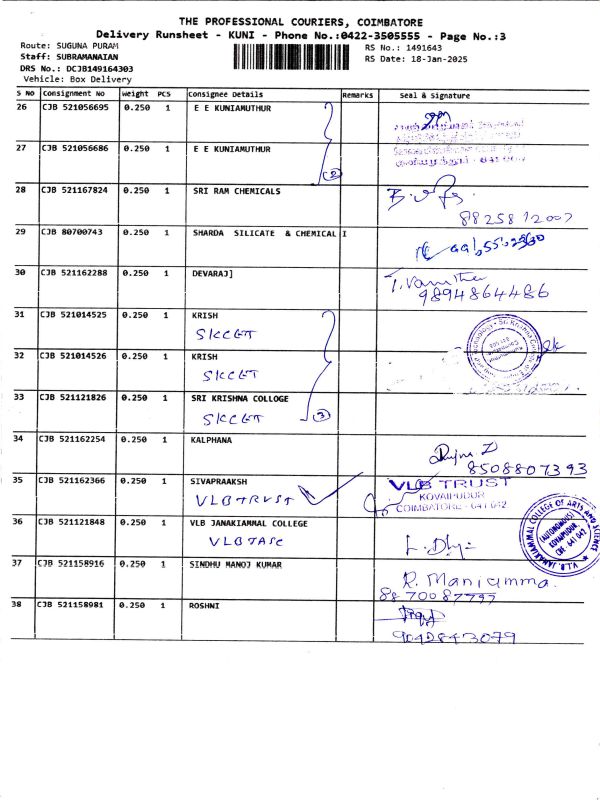 THE PROFESSIONAL COURIERS, COIMBATORE
Delivery Runsheet - KUNI - Phone No.:0422-3505555 - Page No.:3
Route: SUGUNA PURAM
RS No.: 1491643
Staff: SUBRAMANAIAN
RS Date: 18-Jan-2025
DRS No.: DCJB149164303
Vehicle: Box Delivery
S NO Consignment No Weight PCS Consignee Details Remarks Seal & Signature
26 CJB 521056695 0.250 1 E E KUNIAMUTHUR
27 CJB 521056686 0.250 1 E E KUNIAMUTHUR
2
28 CJB 521167824 0.250 1 SRI RAM CHEMICALS
8825812007
29 CJB 80700743 0.250 1 SHARDA SILICATE & CHEMICAL I
30 CJB 521162288 0.250 1 DEVARAJ]
T. Vanitha
9894864486
31 CJB 521014525 0.250 1 KRISH
SKCET
32 CJB 521014526 0.250 1 KRISH
SKCET
33 CJB 521121826 0.250 1 SRI KRISHNA COLLOGE
SKCET
3
34 CJB 521162254 0.250 1 KALPHANA
8508807393
35 CJB 521162366 0.250 1 SIVAPRAAKSH
VLB TRUST
VLB TRUST
KOVAIPUDUR
COIMBATORE - 641 042
36 CJB 521121848 0.250 1 VLB JANAKIAMMAL COLLEGE
VLBTASC
V.L.B. JANAKIAMMAL COLLEGE OF ARTS AND SCIENCE
(AUTONOMOUS)
KOVAIPUDUR,
CBE - 641 042
37 CJB 521158916 0.250 1 SINDHU MANOJ KUMAR
R. Maniamma.
8870087795
38 CJB 521158981 0.250 1 ROSHNI
9042843079